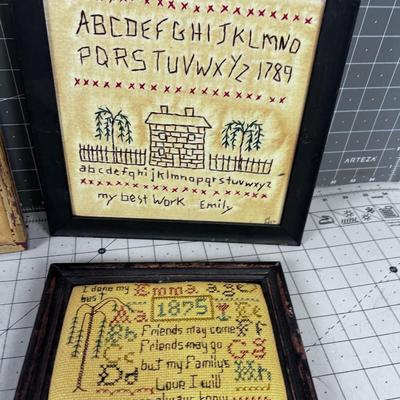 ABCDEFGHIJKLMNO
PQRSTUVWXYZ 1789
abcdefghijklmnopqrstuvwxyz
my best work Emily
ARTEZA
I done my best
Emma age
Aa 1875
Friends may come Ff
Bb Friends may go Gg
but my Family's
Dd Love I will Hh
always know